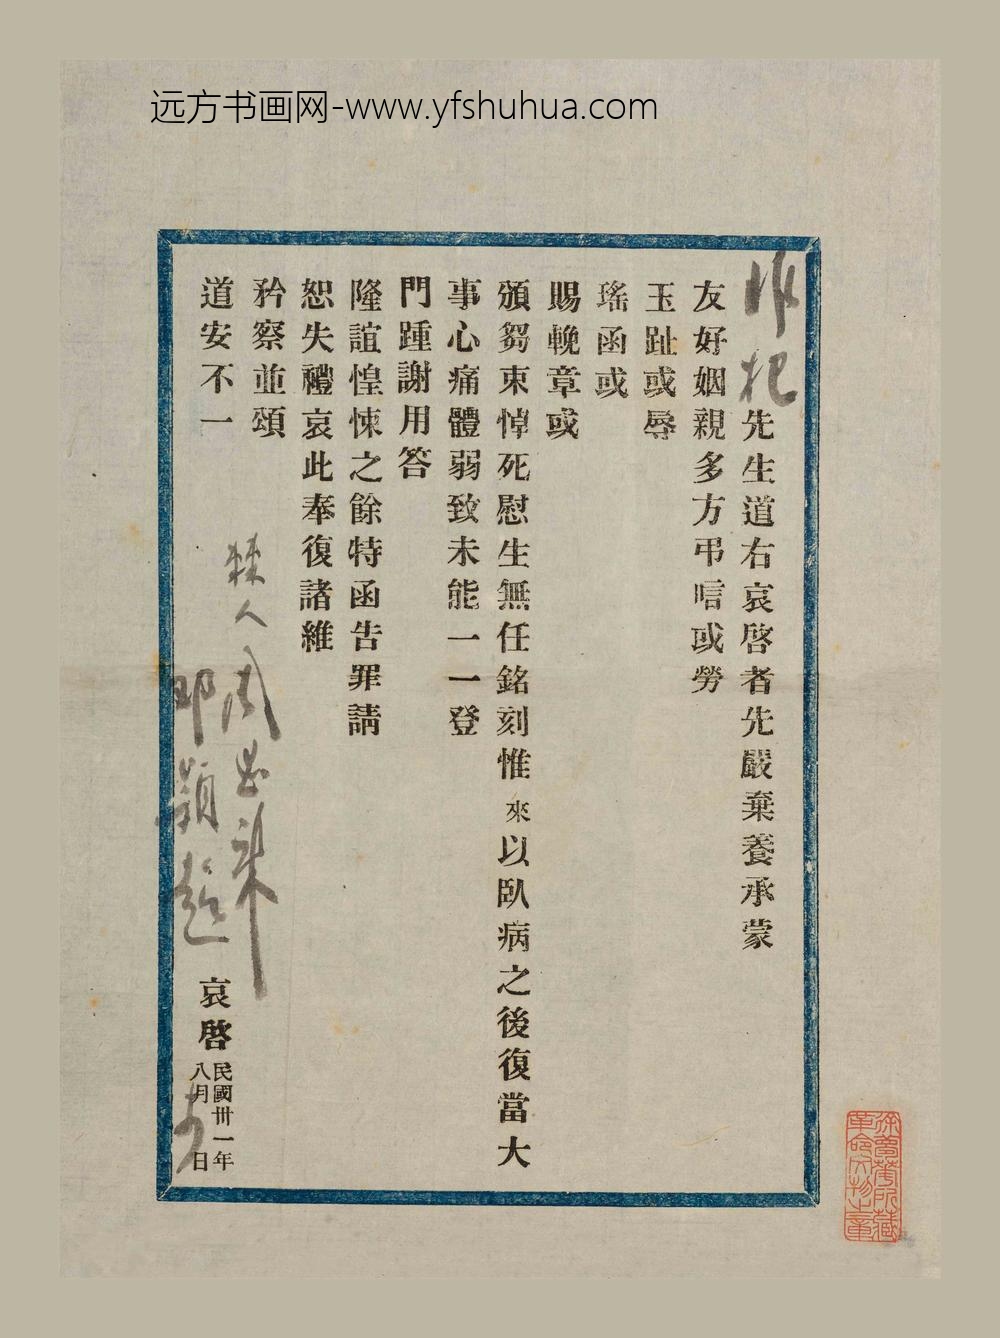 远方书画网-www.yfshuhua.com
作杞先生道右哀啓者先嚴棄養承蒙
友好姻親多方弔唁或勞
玉趾或辱
瑤函或
賜輓章或
頒芻束悼死慰生無任銘刻惟來以臥病之後復當大
事心痛體弱致未能一一登
門踵謝用答
隆誼惶悚之餘特函告罪請
恕失禮哀此奉復諸維
矜察並頌
道安不一
棘人周恩來
鄧穎超
哀啓
民國卅一年
八月 日